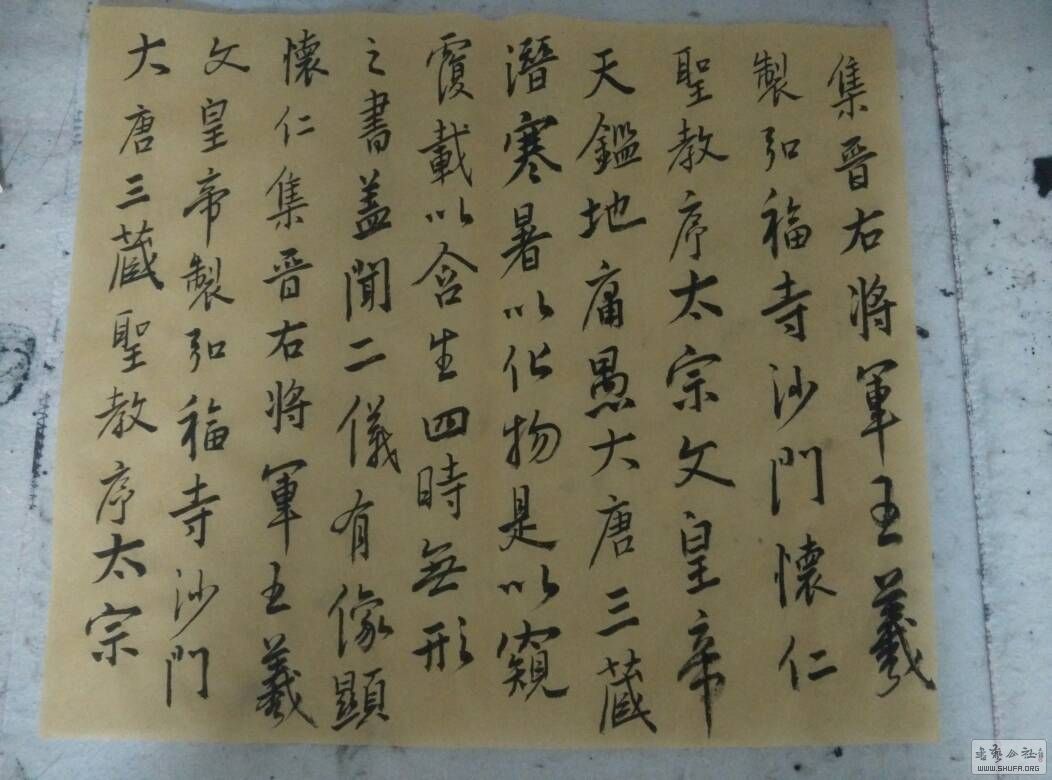 大唐三藏聖教序太宗
文皇帝製弘福寺沙門
懷仁集晉右將軍王羲
之書蓋聞二儀有像顯
覆載以含生四時無形
潛寒暑以化物是以窺
天鑑地庸愚大唐三藏
聖教序太宗文皇帝
製弘福寺沙門懷仁
集晉右將軍王羲
书艺公社
WWW.SHUFA.ORG